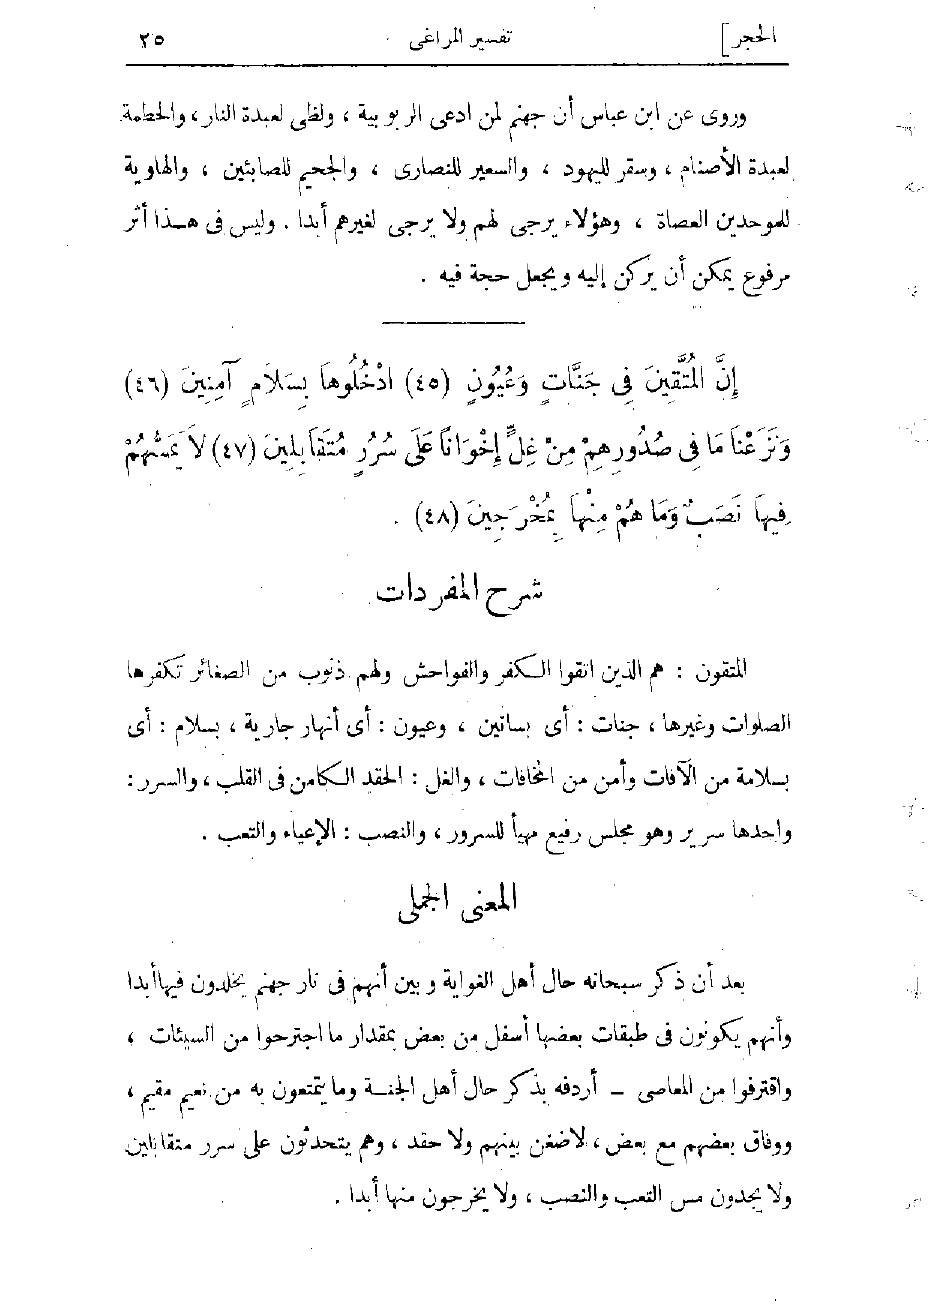 الحجر]
تفسير المراغى
٢٥
وروى عن ابن عباس أن جهنم لمن ادعى الربوبية ، ولظى لعبدة النار ، والحطمة
لعبدة الأصنام ، وسقر لليهود ، والسعير للنصارى ، والجحيم للصابئين ، والهاوية
للموحدين العصاة ، وهؤلاء يرجى لهم ولا يرجى لغيرهم أبدا . وليس فى هذا أثر
مرفوع يمكن أن يركن إليه ويجعل حجة فيه .
إِنَّ الْمُتَّقِينَ فِى جَنَّاتٍ وَعُيُونٍ (٤٥) ادْخُلُوهَا بِسَلَامٍ آمِنِينَ (٤٦)
وَنَزَعْنَا مَا فِى صُدُورِهِمْ مِنْ غِلٍّ إِخْوَانًا عَلَى سُرُرٍ مُتَقَابِلِينَ (٤٧) لاَ يَمَسُّهُمْ
فِيهَا نَصَبٌ وَمَا هُمْ مِنْهَا بِمُخْرَجِينَ (٤٨) .
شرح المفردات
المتقون : هم الذين اتقوا الكفر والفواحش ولهم ذنوب من الصغائر تكفرها
الصلوات وغيرها ، جنات : أى بساتين ، وعيون : أى أنهار جارية ، بسلام : أى
بسلامة من الآفات وأمن من المخافات ، والغل : الحقد الكامن فى القلب ، والسرر :
واحدها سرير وهو مجلس رفيع مهيأ للسرور ، والنصب : الإعياء والتعب .
المعنى الجملى
بعد أن ذكر سبحانه حال أهل الغواية وبين أنهم فى نار جهنم يخلدون فيها أبدا
وأنهم يكونون فى طبقات بعضها أسفل من بعض بمقدار ما اجترحوا من السيئات ،
واقترفوا من المعاصى – أردفه بذكر حال أهل الجنة وما يتمتعون به من نعيم مقيم ،
ووفاق بعضهم مع بعض ، لاضغن بينهم ولا حقد ، وهم يتحدثون على سرر متقابلين
ولا يجدون مس التعب والنصب ، ولا يخرجون منها أبدا .